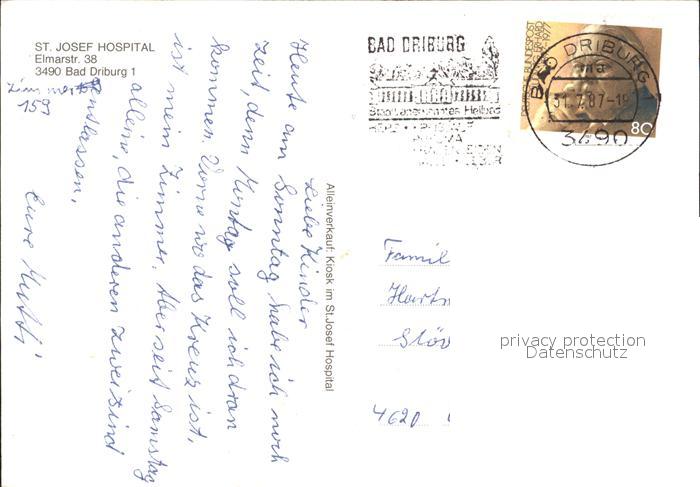 ST. JOSEF HOSPITAL
Elmarstr. 38
3490 Bad Driburg 1
Zimmer
159
Liebe Kinder
Heute am Sonntag habe ich noch
Zeit, denn Montag soll ich dran
kommen. Vorne wo das Kreuz ist,
ist mein Zimmer. Aber seit Samstag
allein, die anderen zwei sind
entlassen.
Eure Mutti
Alleinverkauf: Kiosk im St.Josef Hospital
BAD DRIBURG
Staatlich anerkanntes Heilbad
DEUTSCHE BUNDESPOST
80
BAD DRIBURG
ma
31.7.87-18
3490
Famil
Hartn
Stöv
4620
privacy protection
Datenschutz